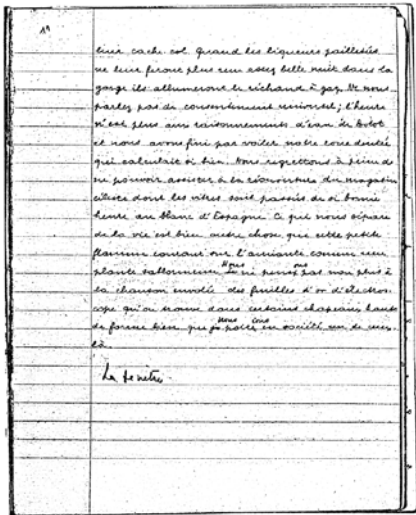 19
leur cache-col. Quand les liqueurs pailletées
ne leur feront plus une assez belle nuit dans la
gorge ils allumeront le réchaud à gaz. Ne nous
parlez pas de consentement universel ; l'heure
n'est plus aux raisonnements d'eau de Botot
et nous avons fini par voiler notre roue dentée
qui calculait si bien. Nous regrettons à peine de
ne pouvoir assister à la réouverture du magasin
céleste dont les vitres sont passées de si bonne
heure au blanc d'Espagne. Ce qui nous sépare
de la vie est bien autre chose que cette petite
flamme courant sur l'amiante comme une
Nous ons
plante sablonneuse. ne pense pas non plus à
la chanson envolée des feuilles d'or d'électros-
cope qu'on trouve dans certains chapeaux hauts
nous ions
de forme bien que je porte en société un de ceux-
là.
La fenêtre.